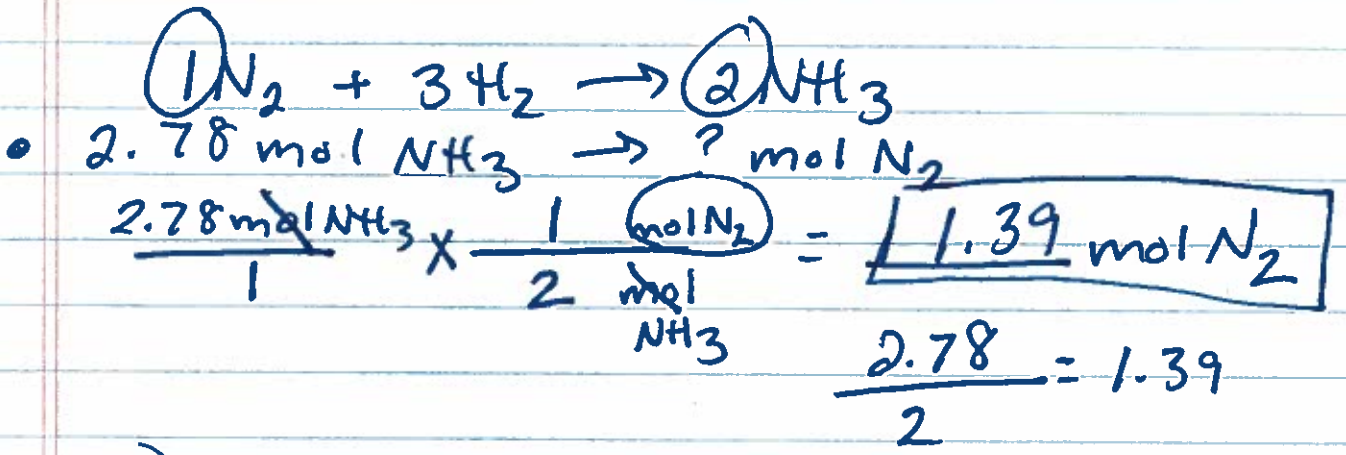 1N₂ + 3H₂ → 2NH₃
• 2.78 mol NH₃ → ? mol N₂
2.78 mol NH₃/1 × 1 mol N₂/2 mol NH₃ = 1.39 mol N₂
2.78/2 = 1.39